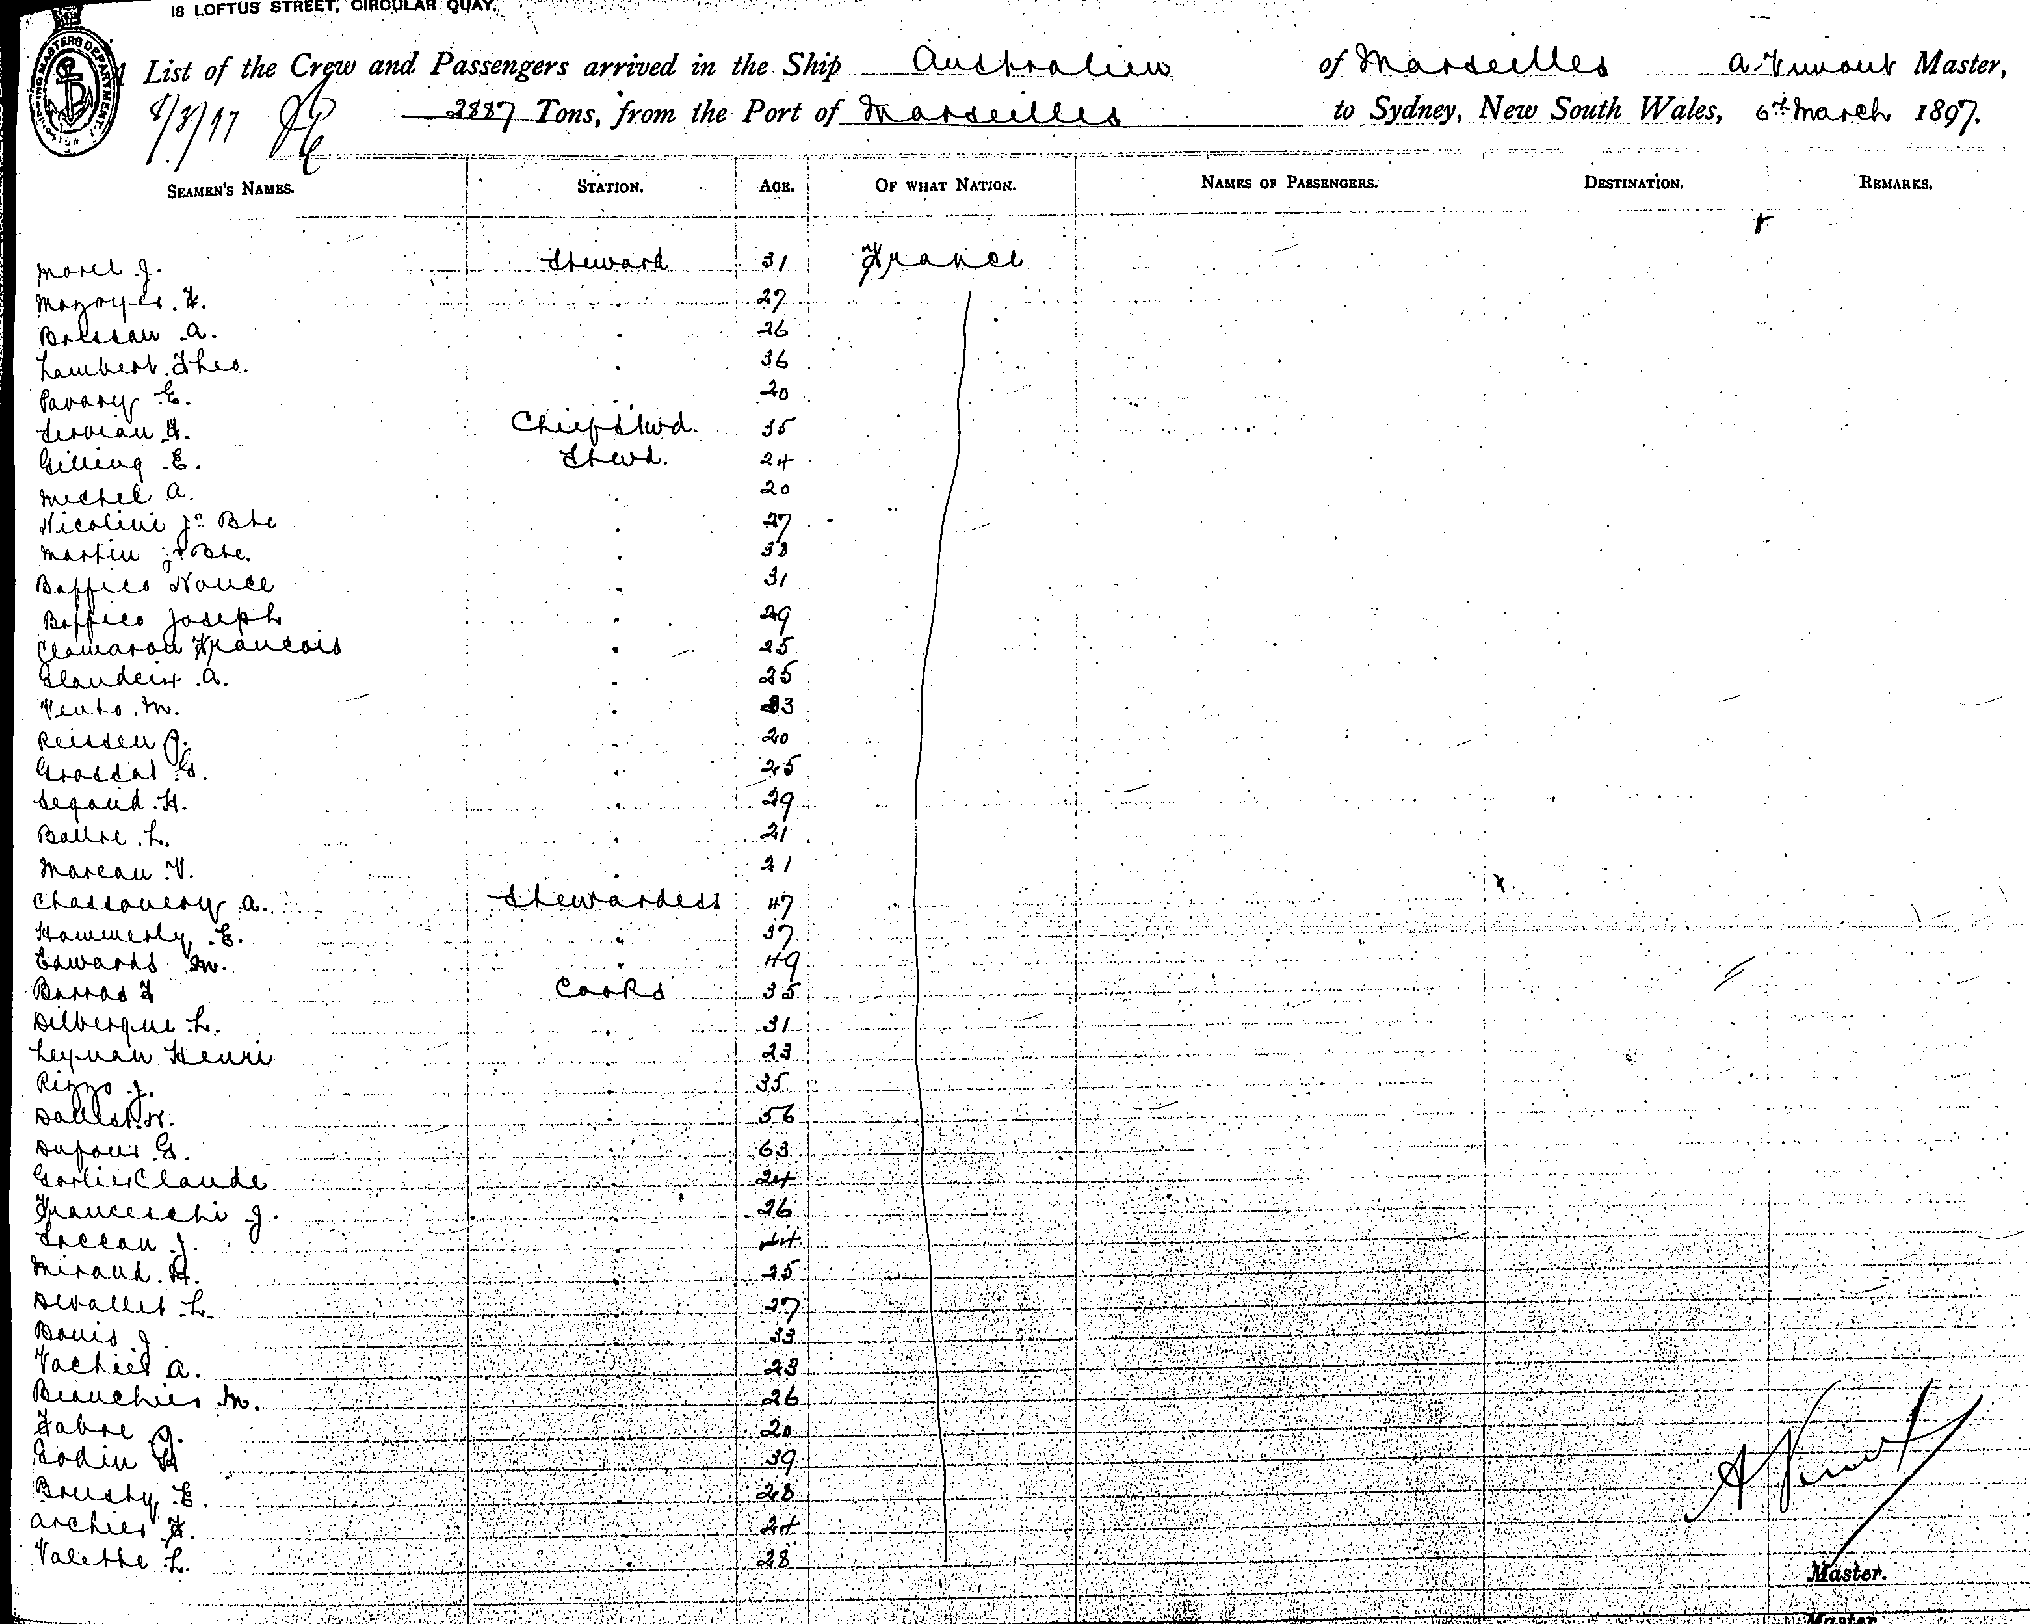 18 LOFTUS STREET, CIRCULAR QUAY.
SHIPPING MASTERS DEPARTMENT
List of the Crew and Passengers arrived in the Ship Australien of Marseilles A. Vimont Master,
8/3/97 2887 Tons, from the Port of Marseilles to Sydney, New South Wales, 6th March 1897.
SEAMEN'S NAMES. STATION. AGE. OF WHAT NATION. NAMES OF PASSENGERS. DESTINATION. REMARKS.
Morel J. Steward 31 France
Mazoyer F. 27
Bressan A. 26
Lambert Theo. 36
Pavary E. 20
Servian F. Chief Stwd. 35
Gilling E. Stewd. 24
Michel A. 20
Nicolini Jn Bte 27
Martin Jn Bte. 33
Boffico Nonce 31
Boffico Joseph 29
Clamaron Francois 25
Glaudeix A. 25
Vento M. 33
Reissen J. 20
Grossat G. 25
Segaud H. 29
Baure L. 21
Mareau V. 21
Chassouery A. Stewardess 47
Hammerly E. 37
Edwards M. 49
Barras F Cooks 35
Dilbergue L. 31
Leyman Henri 23
Rizzo J. 35
Dallest H. 56
Dufour G. 63
Garlier Claude 24
Franceschi J. 26
J. 44
Miraud H. 25
Devallet L. 27
Bouis J 33
Vachier A. 23
Bianchier M. 26
Fabre J. 20
Godin H 39
Brusty E. 28
Archier F. 24
Valette L. 28
A Vimont
Master.
Master